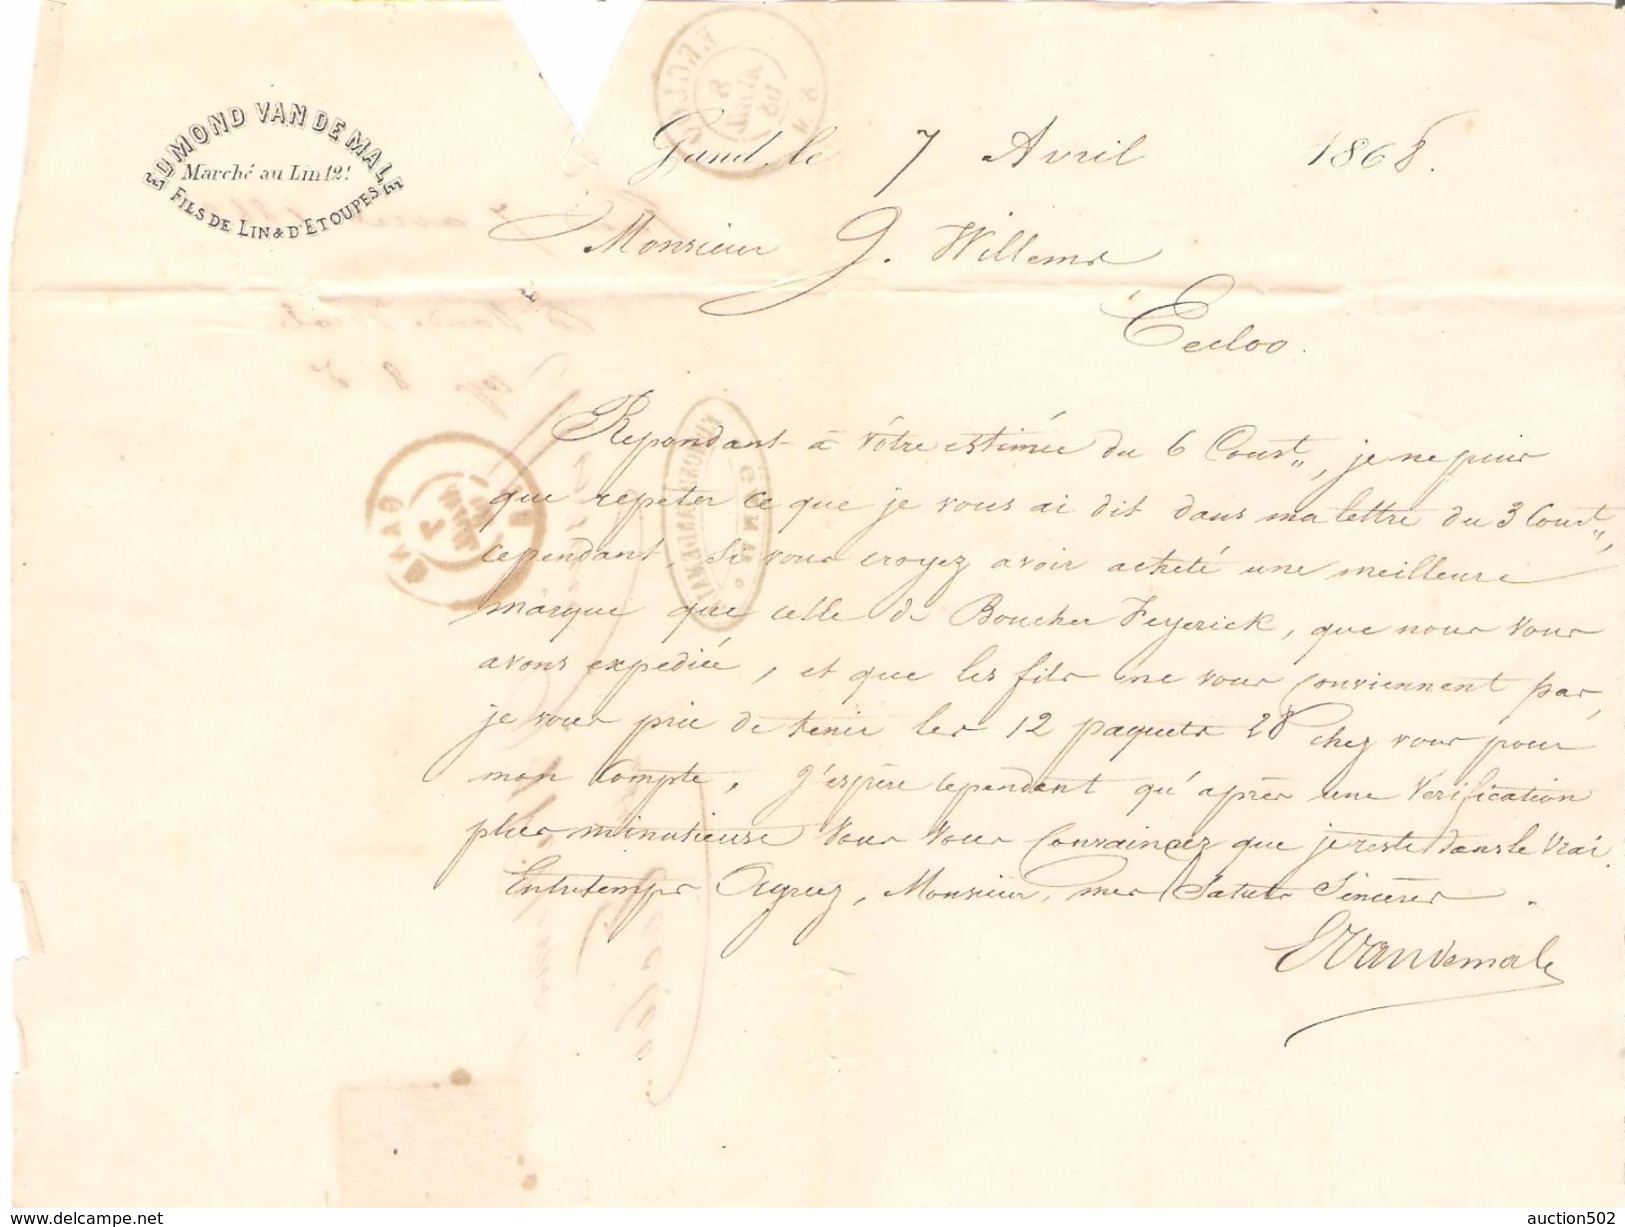 EDMOND VAN DE MALE
Marché au Lin 12!
FILS DE LIN & D'ETOUPES
Gand, le 7 Avril 1868.
Monsieur J. Willems
Eecloo.
Repondant à vôtre estimée du 6 Court", je ne puis
que repeter ce que je vous ai dit dans ma lettre du 3 Court",
cependant, si vous croyez avoir acheté une meilleure
marque que celle de Boucher Feyerick, que nous vous
avons expediée, et que les fils ne vous conviennent pas,
je vous prie de tenir les 12 paquets 28 chez vous pour
mon compte. J'espère cependant qu'après une Vérification
plus minutieuse vous vous Convaincez que je reste dans le vrai.
Entretemps Agreez, Monsieur, mes Saluts Sincères.
EVandemale
www.delcampe.net
auction502